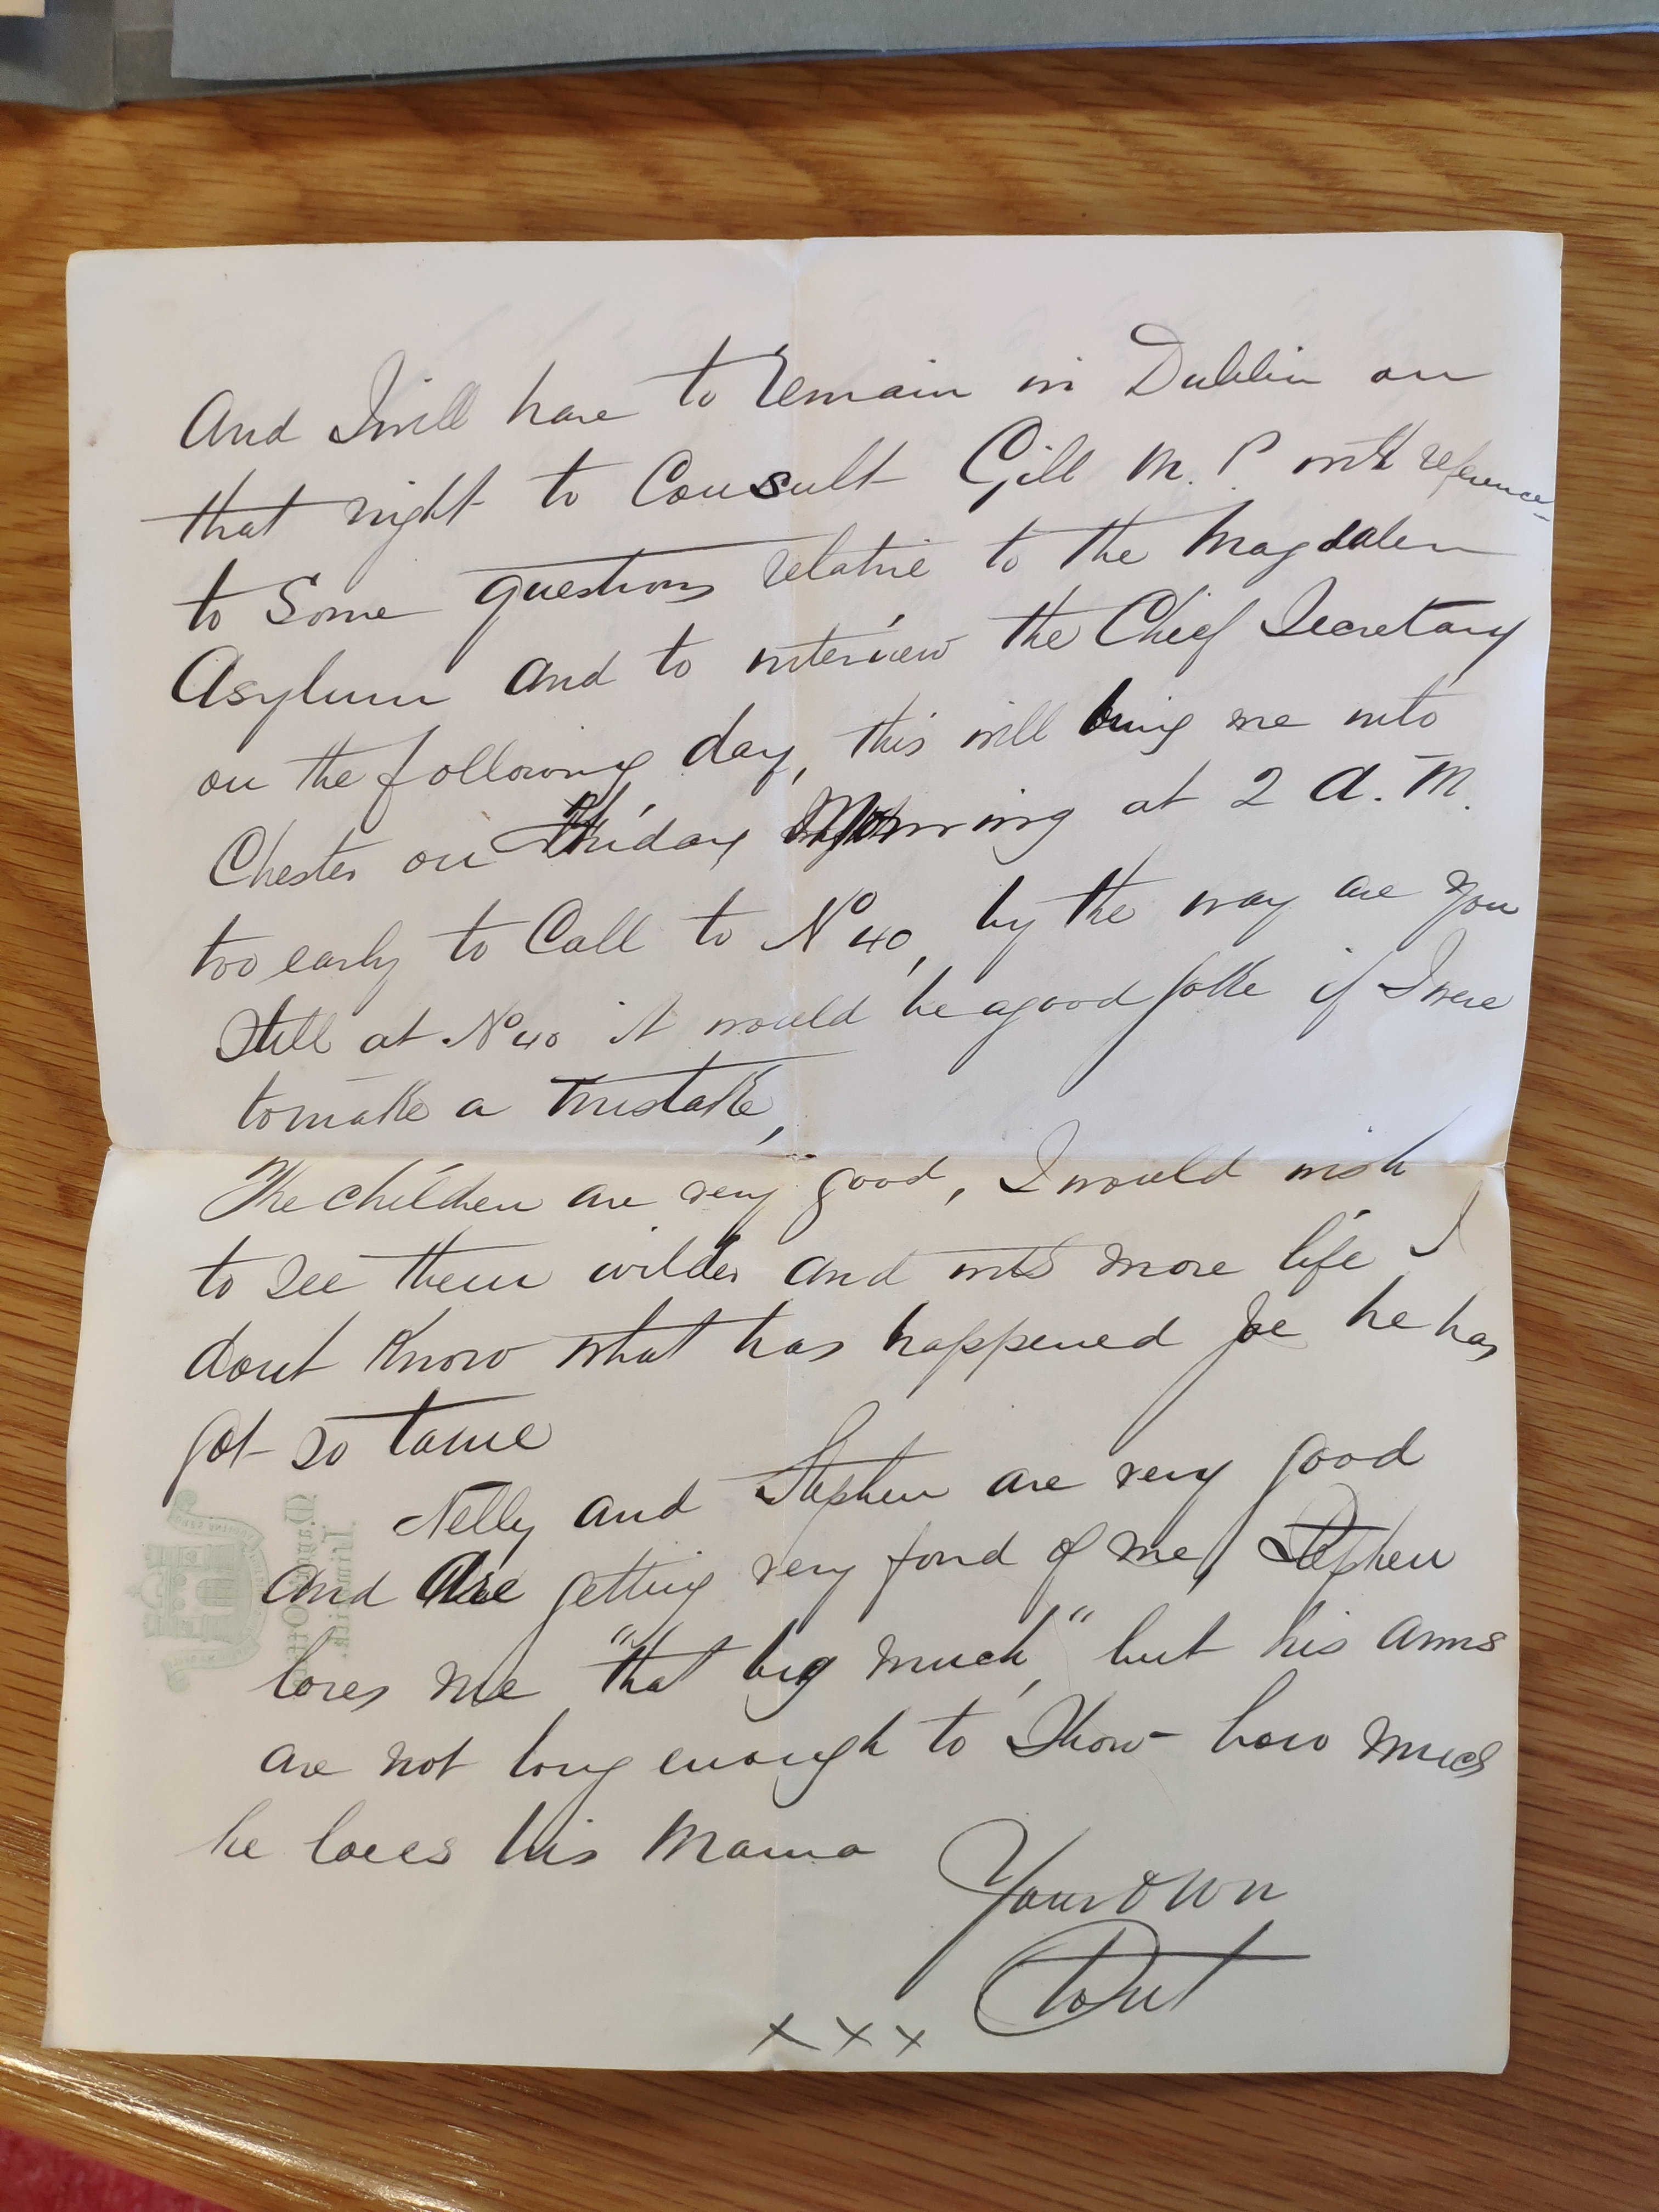 And I will have to remain in Dublin on
that night to Consult Gill M. P with reference
to Some questions relative to the Magdalen
Asylum and to interview the Chief Secretary
on the following day, this will bring me into
Chester on Friday Morning at 2 A. M.
too early to Call to No 40, by the way are you
Still at No 40 it would be a good joke if I were
to make a mistake,
The children are very good, I would wish
to see them wilder and with more life I
dont Know what has happened Joe he has
got so tame
Nelly and Stephen are very good
and are getting very fond of me, Stephen
loves me "that big much," but his arms
are not long enough to Show how much
he loves his Mama
Your own
x x x
Mayor's Office
Limerick.